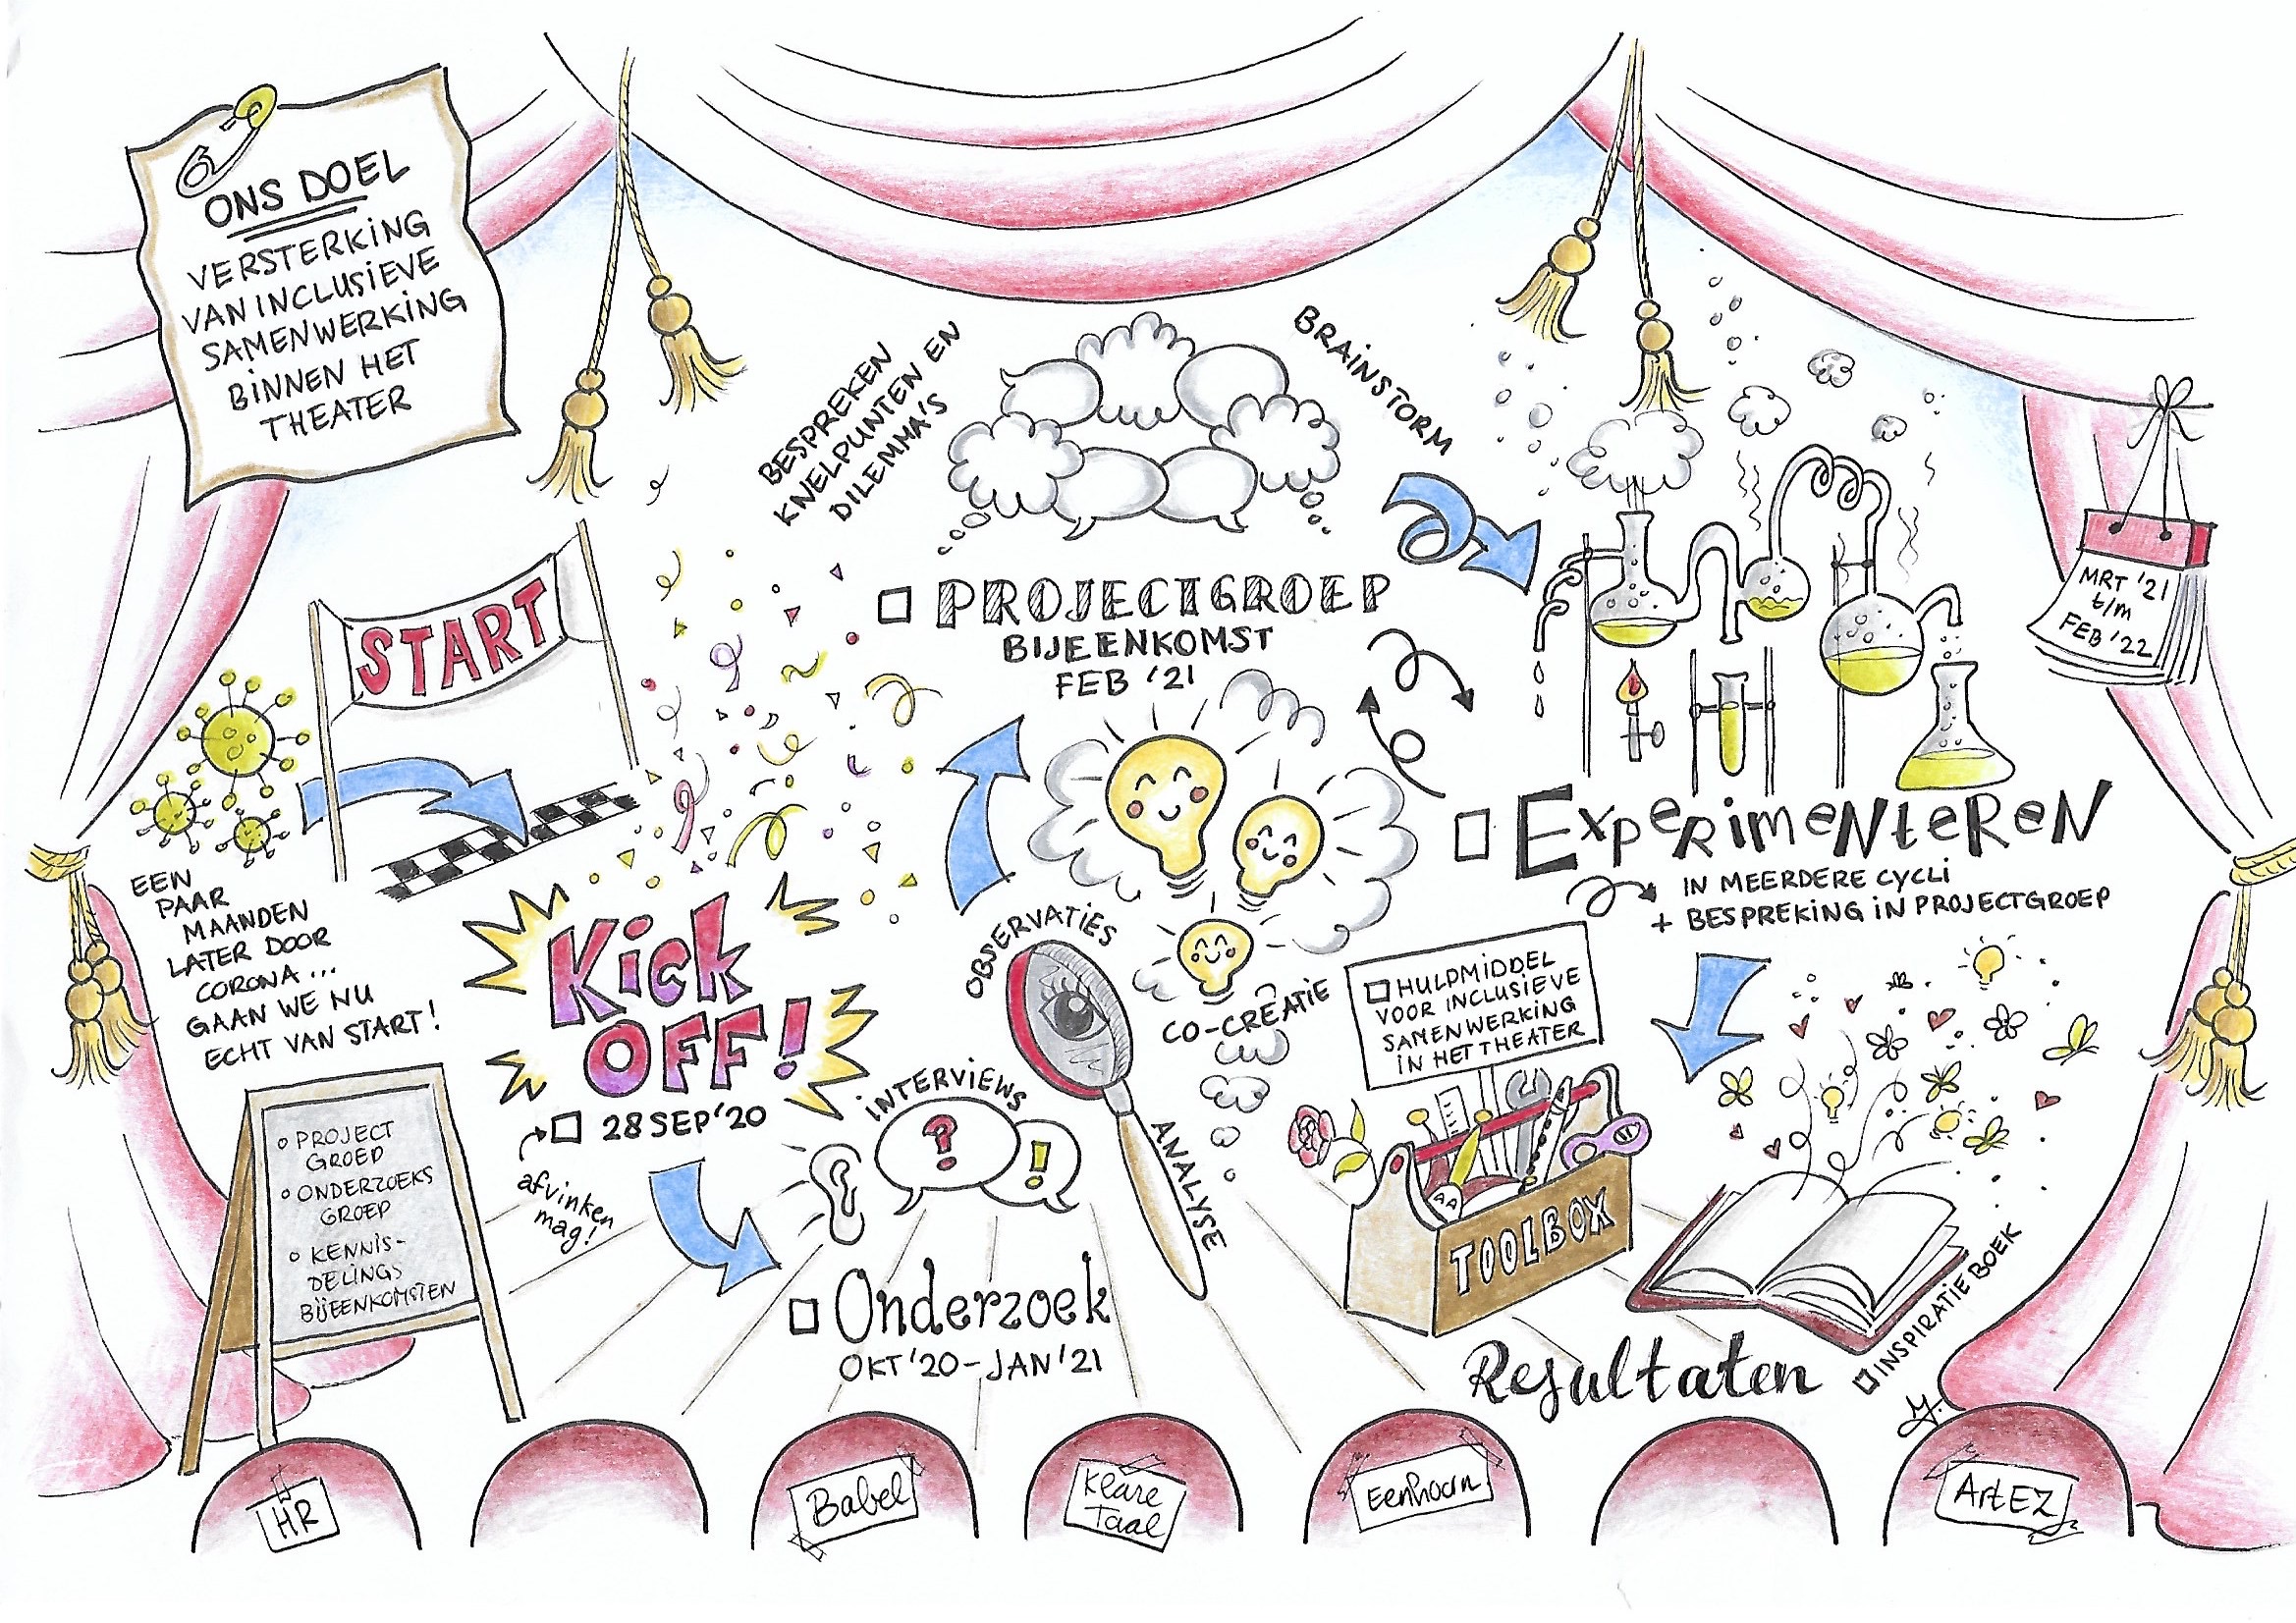 ONS DOEL
VERSTERKING
VAN INCLUSIEVE
SAMENWERKING
BINNEN HET
THEATER
START
EEN
PAAR
MAANDEN
LATER DOOR
CORONA...
GAAN WE NU
ECHT VAN START!
Kick
OFF!
28 SEP '20
afvinken
mag!
o PROJECT
GROEP
o ONDERZOEKS
GROEP
o KENNIS-
DELINGS
BIJEENKOMSTEN
INTERVIEWS
?
!
OBSERVATIES
ANALYSE
Onderzoek
OKT '20 - JAN '21
BESPREKEN
KNELPUNTEN EN
DILEMMA'S
BRAINSTORM
PROJECTGROEP
BIJEENKOMST
FEB '21
CO-CREATIE
MRT '21
t/m
FEB '22
EXPERIMENTEREN
IN MEERDERE CYCLI
+ BESPREKING IN PROJECTGROEP
HULPMIDDEL
VOOR INCLUSIEVE
SAMENWERKING
IN HET THEATER
AA
TOOLBOX
INSPIRATIEBOEK
Resultaten
HR
Babel
Klare
Taal
Eenhoorn
ArtEZ